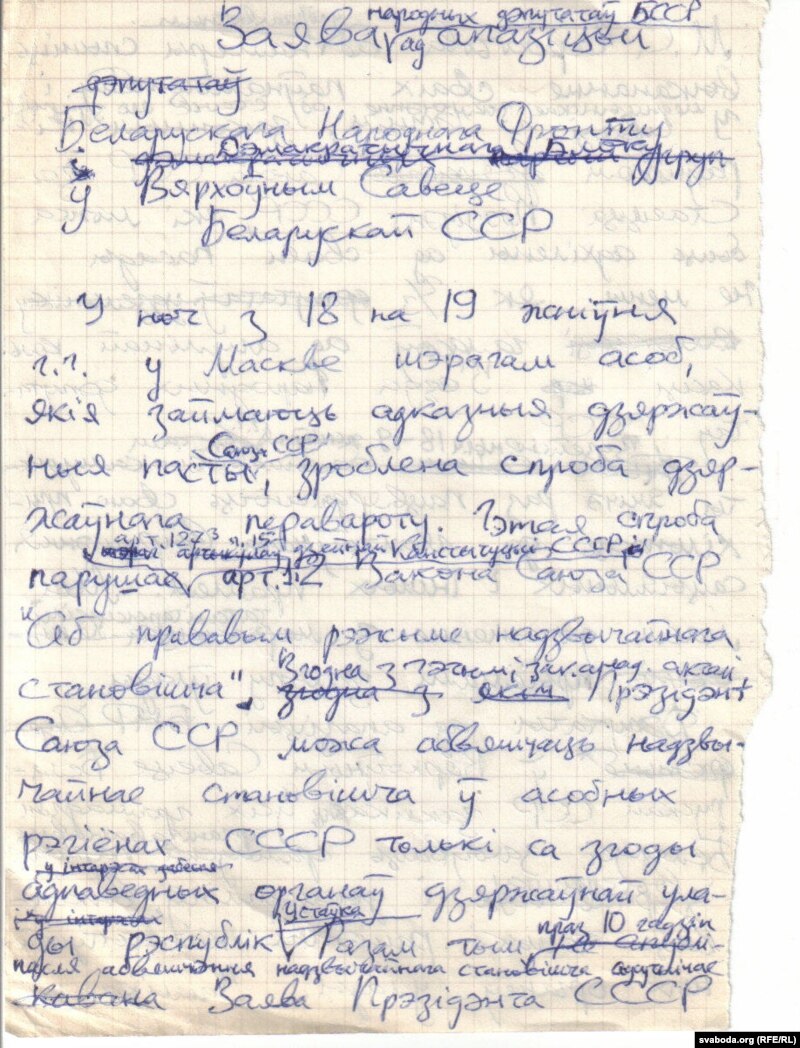 народных дэпутатаў БССР
Заява ад апазіцыі
дэпутатаў
Беларускага Народнага Фронту
Дэмакратычнага
ў Вярхоўным Савеце
Беларускай ССР
У ноч з 18 на 19 жніўня
г.г. у Маскве шэрагам асоб,
якія займаюць адказныя дзяржаў-
Саюза ССР
ныя пасты, зроблена спроба дзяр-
жаўнага перавароту. Гэтая спроба
арт. 127³ п. 15 Канстытуцыі СССР і
парушае арт. 1,2 Закона Саюза ССР
"Аб прававым рэжыме надзвычайнага
Згодна з гэтымі зак.анад. актамі
становішча", згодна з якім Прэзідэнт
Саюза ССР можа абвяшчаць надзвы-
чайнае становішча ў асобных
рэгіёнах СССР толькі са згоды
у інтарэсах
адпаведных органаў дзяржаўнай ула-
Устаўка
ды рэспублік Разам з тым праз 10 гадзін
пасля абвяшчэння надзвычайнага становішча адсутнічае
Заява Прэзідэнта СССР
svaboda.org (RFE/RL)